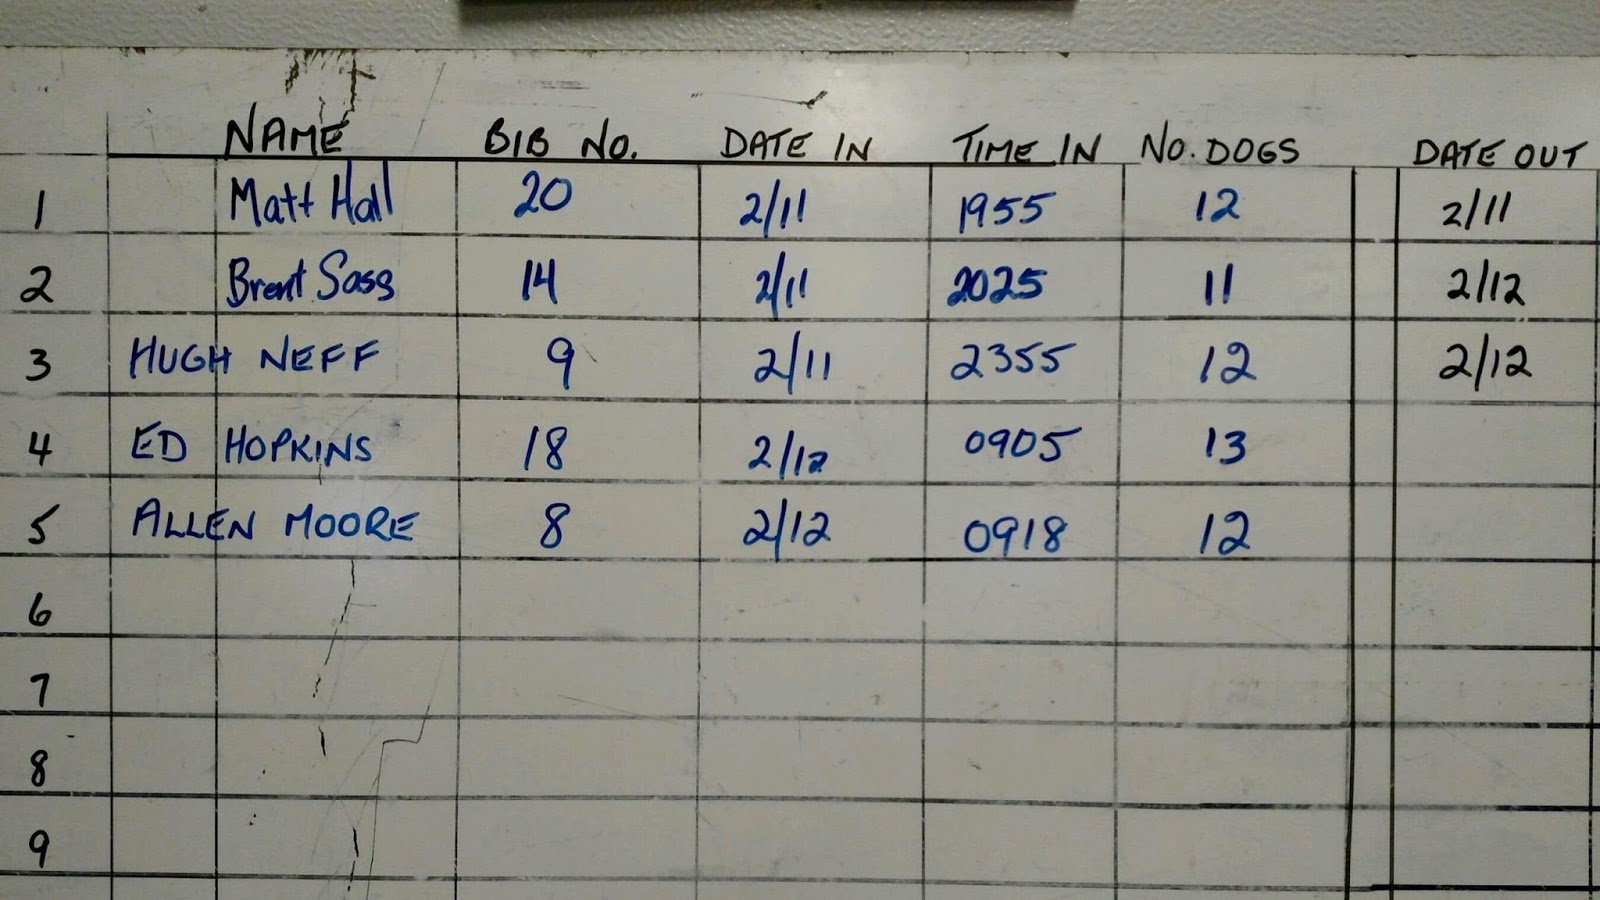 NAME BIB NO. DATE IN TIME IN NO. DOGS DATE OUT
1 Matt Hall 20 2/11 1955 12 2/11
2 Brent Sass 14 2/11 2025 11 2/12
3 HUGH NEFF 9 2/11 2355 12 2/12
4 ED HOPKINS 18 2/12 0905 13
5 ALLEN MOORE 8 2/12 0918 12
6
7
8
9